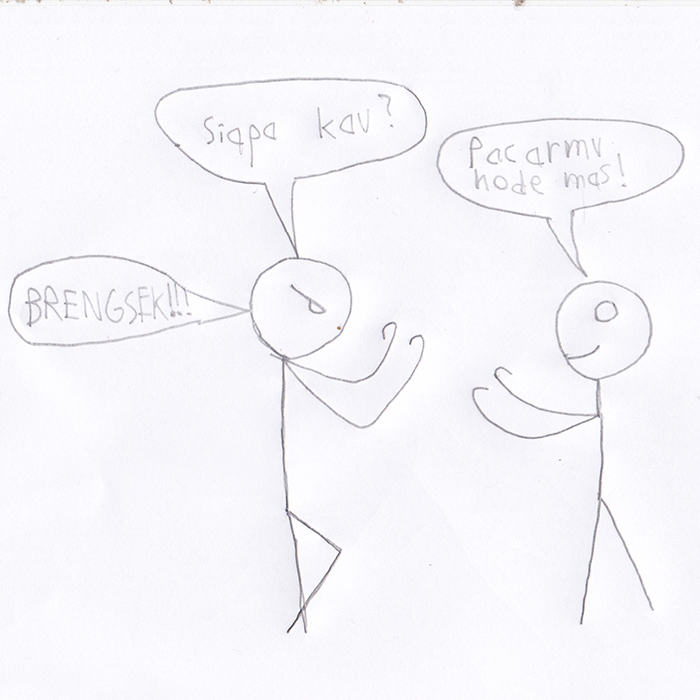 Siapa kau?
Pacarmu
hode mas!
BRENGSEK!!!